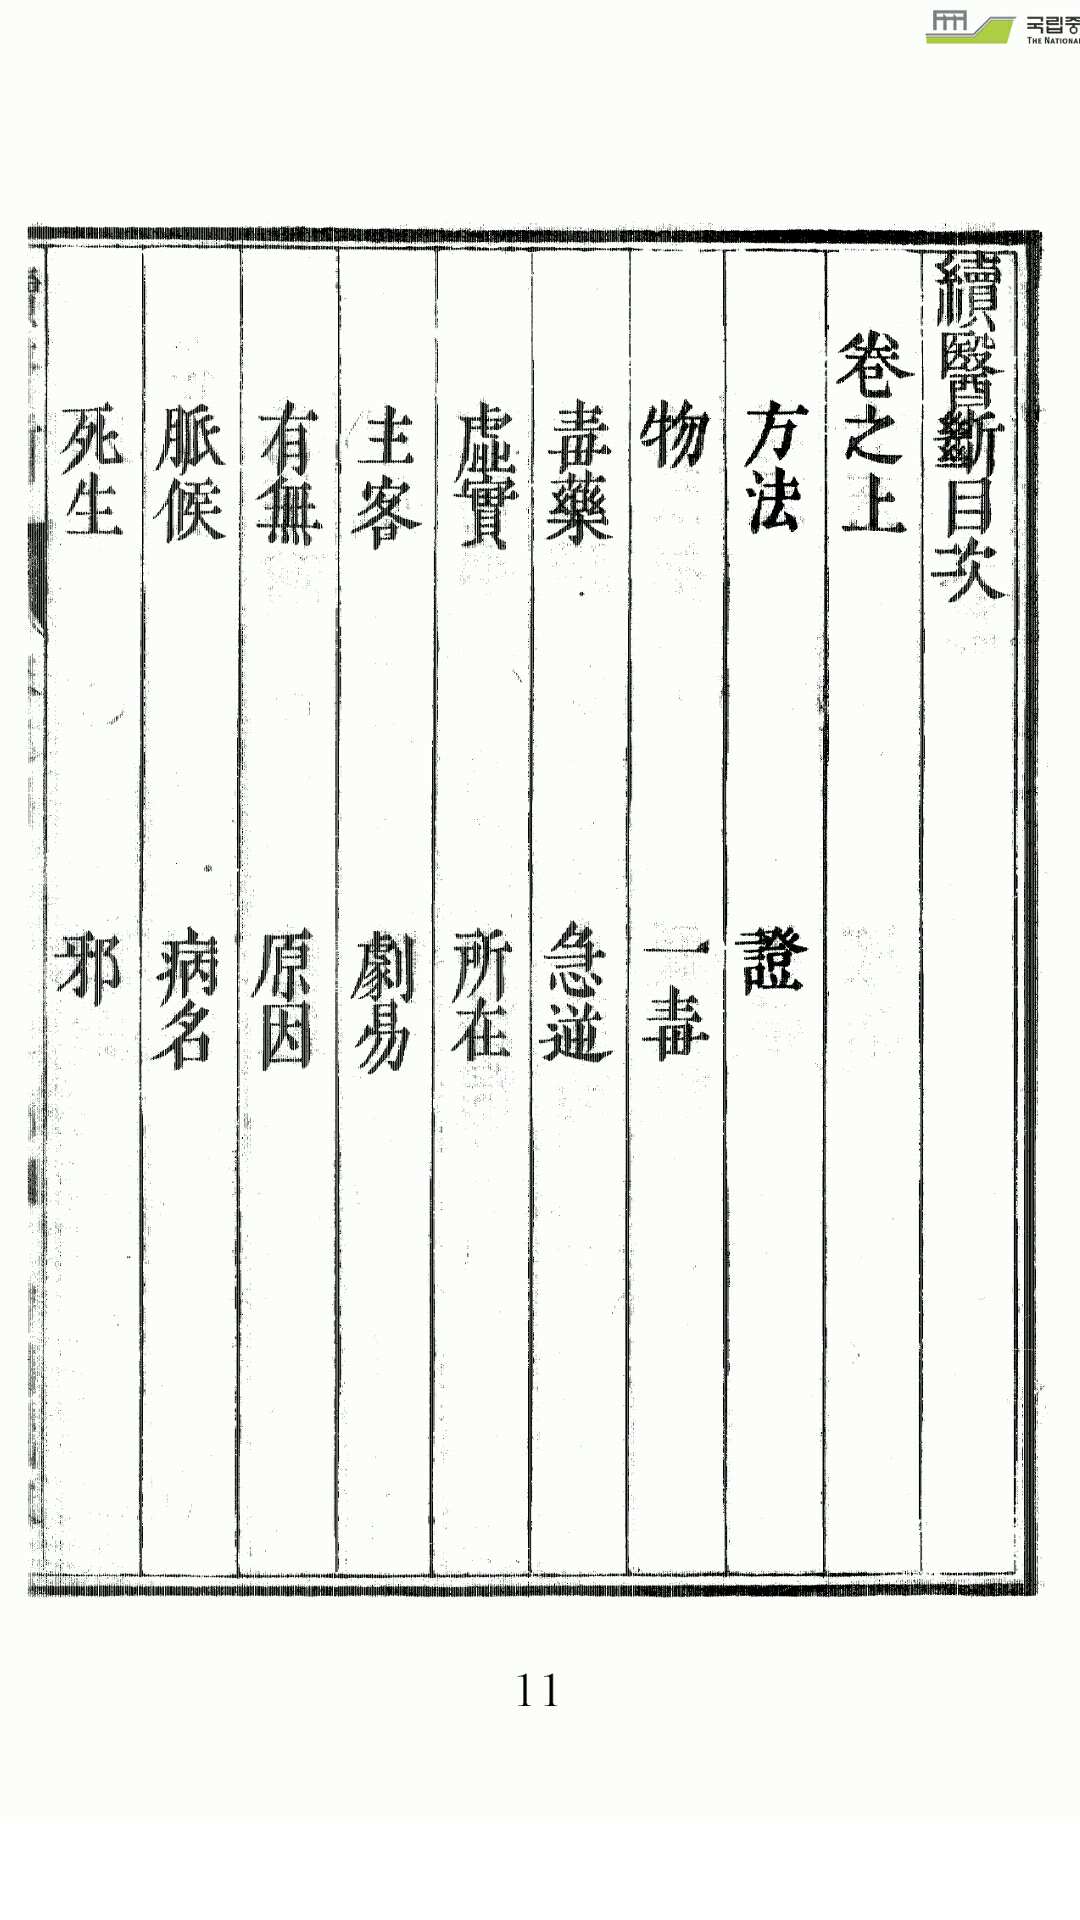 續醫斷目次
卷之上
方法 證
物 一毒
毒藥 急逆
虛實 所在
主客 劇易
有無 原因
脈候 病名
死生 邪
11
국립중
THE NATIONA